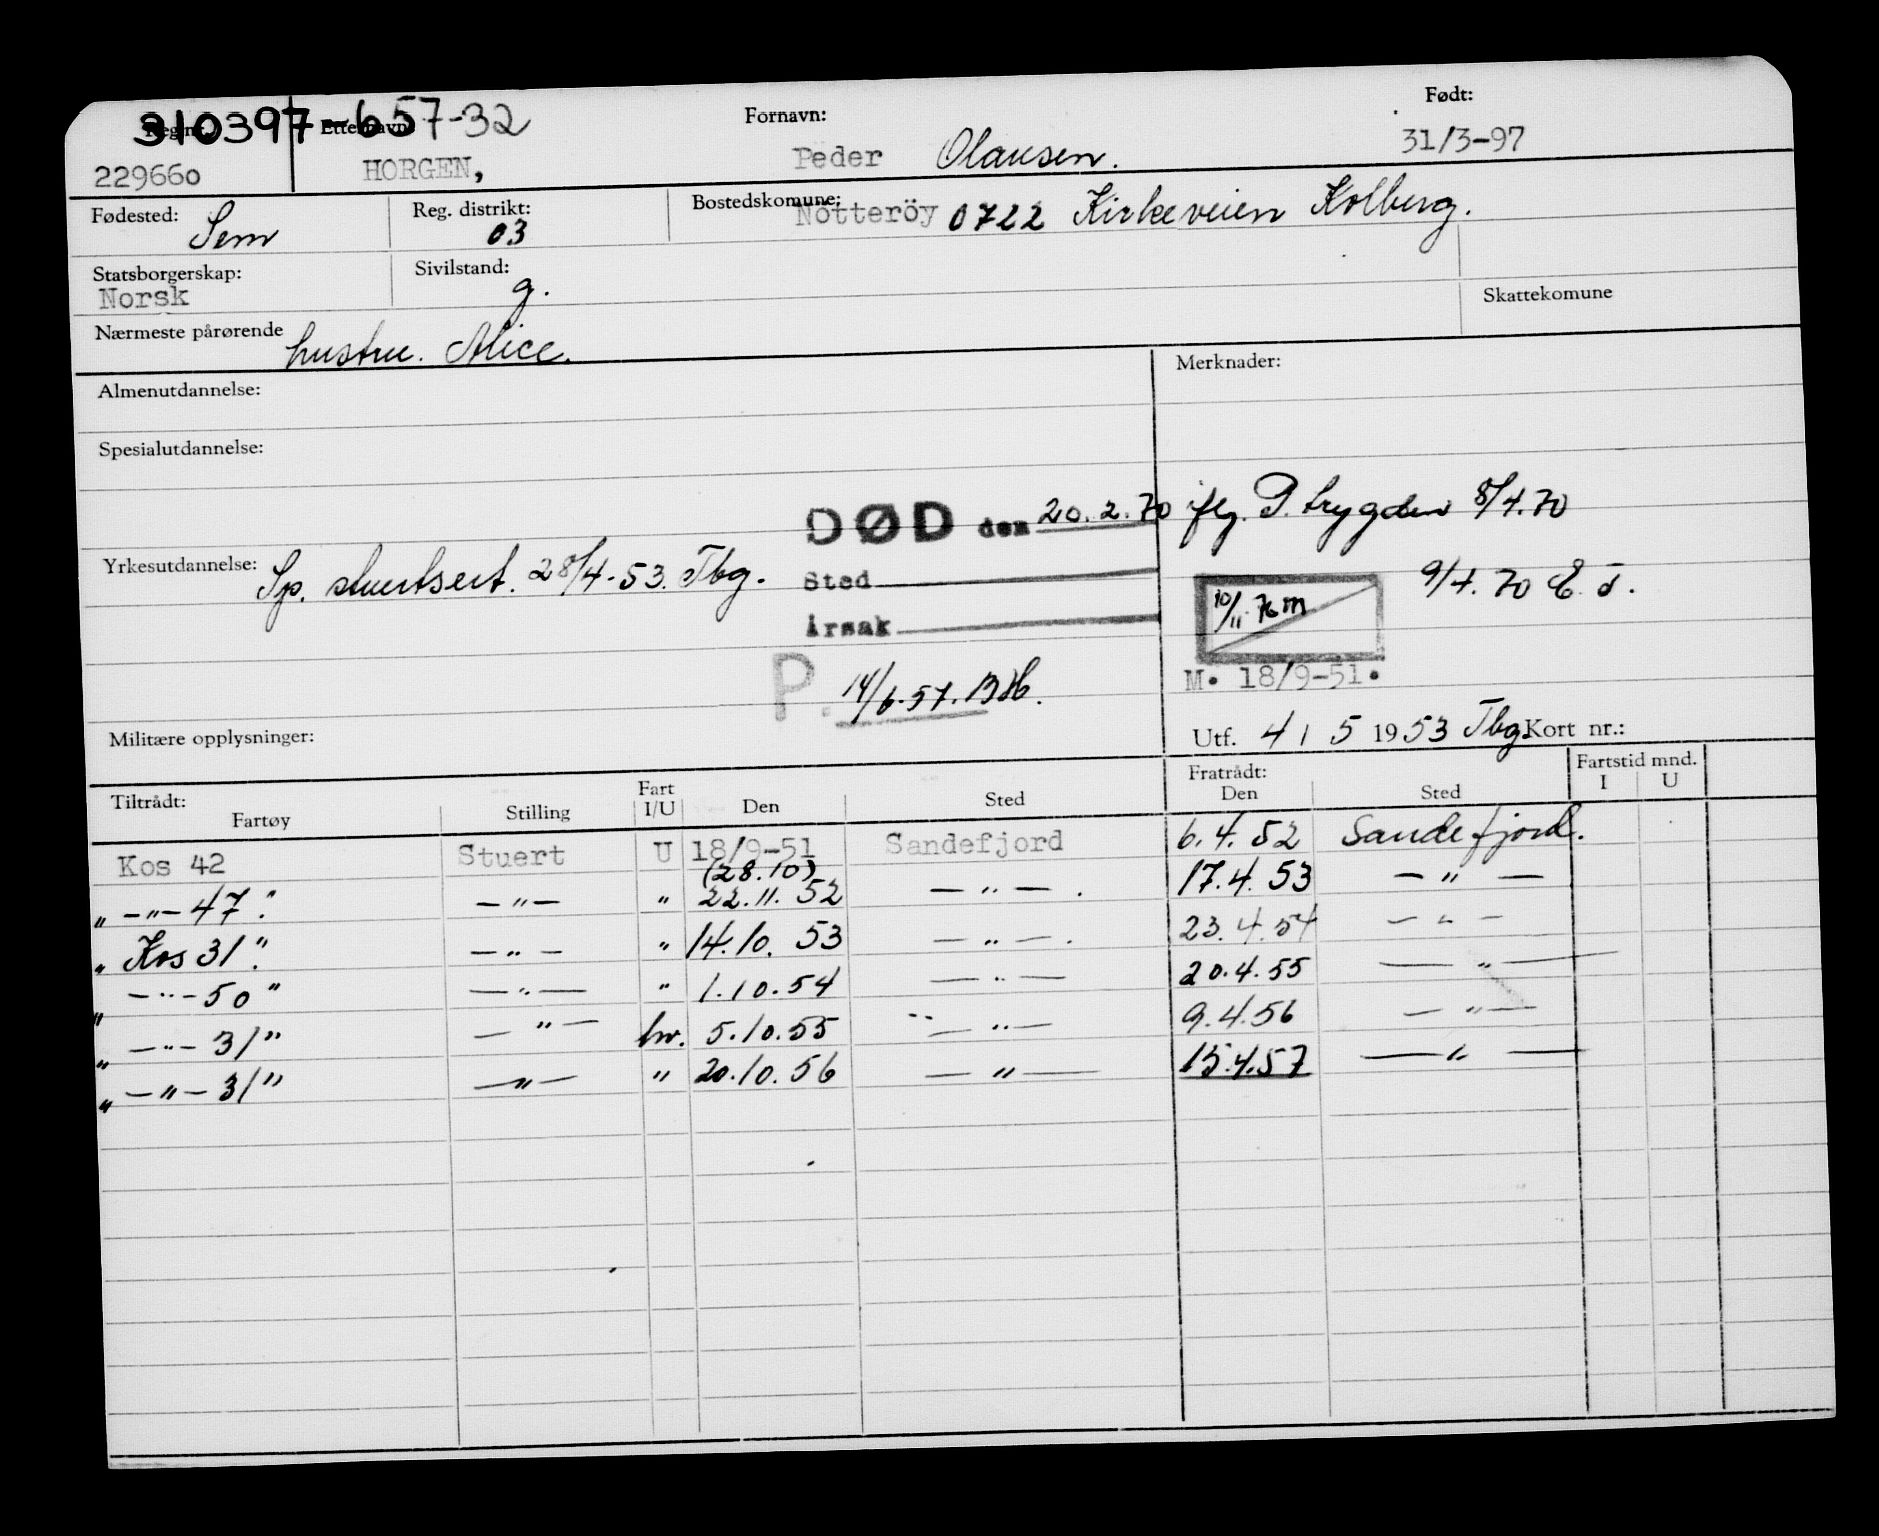 310397-657-32
Reg.nr. Etternavn: Fornavn: Født:
229660 HORGEN, Peder Olausen. 31/3-97
Fødested: Sem Reg. distrikt: 03 Bostedskomune: Nötteröy 0722 Kirkeveien Kolberg.
Statsborgerskap: Norsk Sivilstand: g. Skattekomune
Nærmeste pårørende hustru. Alice.
Almenutdannelse: Merknader:
Spesialutdannelse:
DØD den 20.2.70 iflg. P. trygden 8/4.70
Yrkesutdannelse: Sp. stuertsert. 28/4-53. Tbg. Sted 9/4.70 E.
10/11.76 m
Årsak
P. 14/6.57. M. 18/9-51.
Militære opplysninger: Utf. 4/5 1953 Tbg Kort nr.:
Tiltrådt: Fart Fratrådt: Fartstid mnd.
Fartøy Stilling I/U Den Sted Den Sted I U
Kos 42 Stuert U 18/9-51 Sandefjord 6.4.52 Sandefjord.
(28.10)
" —"— 47". —"— " 22.11.52 —"—. 17.4.53 —"—
" Kos 31". —"— " 14.10.53 —"—. 23.4.54 —"—
" —"— 50" —"— " 1.10.54 —"— 20.4.55 —"—
" —"— 31" —"— hv. 5.10.55 —"— 9.4.56 —"—
" —"— 31" —"— " 20.10.56 —"— 15.4.57 —"—